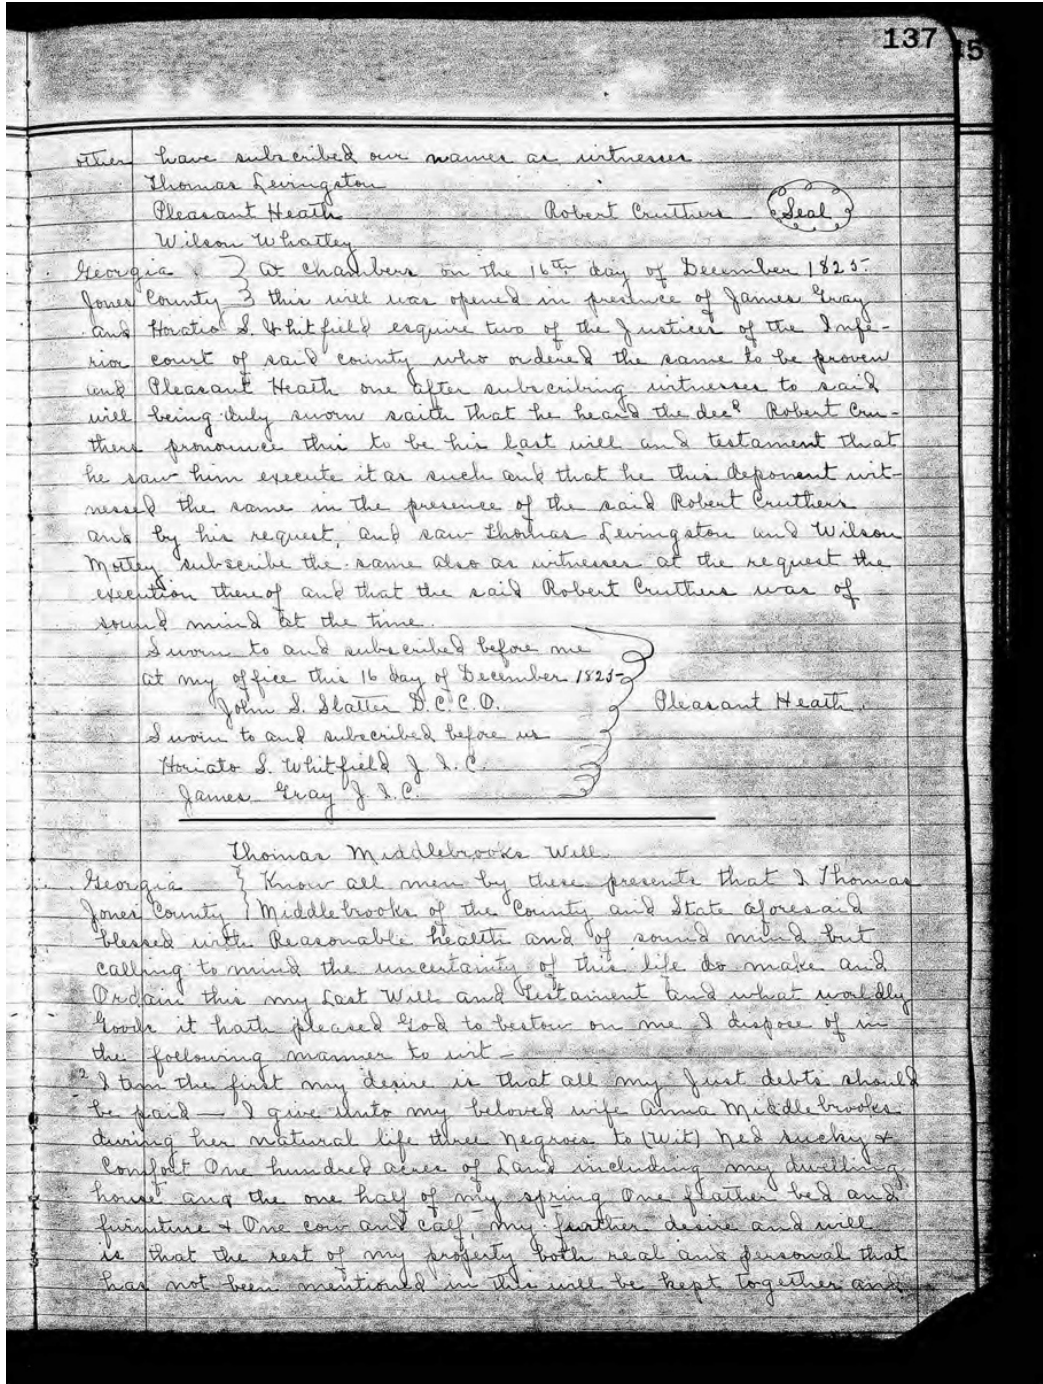 137
15
other have subscribed our names as witnesses
Thomas Levingston
Pleasant Heath Robert Cruthers Seal
Wilson Whatley
Georgia } At chambers on the 16th day of December 1825.
Jones County } this will was opened in presence of James Gray
and Horatio S. Whitfield esquire two of the Justices of the Infe-
rior court of said county who ordered the same to be proven
and Pleasant Heath one after subscribing witnesses to said
will being duly sworn saith that he heard the decd Robert Cru-
thers pronounce this to be his last will and testament that
he saw him execute it as such and that he this deponent wit-
nessed the same in the presence of the said Robert Cruthers
and by his request, and saw Thomas Levingston and Wilson
Mottey subscribe the same also as witnesses at the request the
execution thereof and that the said Robert Cruthers was of
sound mind at the time.
Sworn to and subscribed before me
at my office this 16 day of December 1825
John S. Slatter D.C.C.O. Pleasant Heath.
Sworn to and subscribed before us
Horiato S. Whitfield J. I. C.
James Gray J. I. C.
Thomas Middlebrooks Will.
Georgia } Know all men by these presents that I Thomas
Jones County } Middlebrooks of the County and State aforesaid
blessed with Reasonable health and of sound mind but
calling to mind the uncertainty of this life do make and
Ordain this my Last Will and Testament and what worldly
Goods it hath pleased God to bestow on me I dispose of in
the following manner to wit –
I tem the first my desire is that all my Just debts should
be paid — I give unto my beloved wife Anna Middlebrooks
during her natural life three Negrois to (Wit) Ned Sucky &
Comfort One hundred acres of Land including my dwelling
house and the one half of my spring One feather bed and
furniture & One cow and calf my further desire and will
is that the rest of my property both real and personal that
has not been mentioned in this will be kept together and